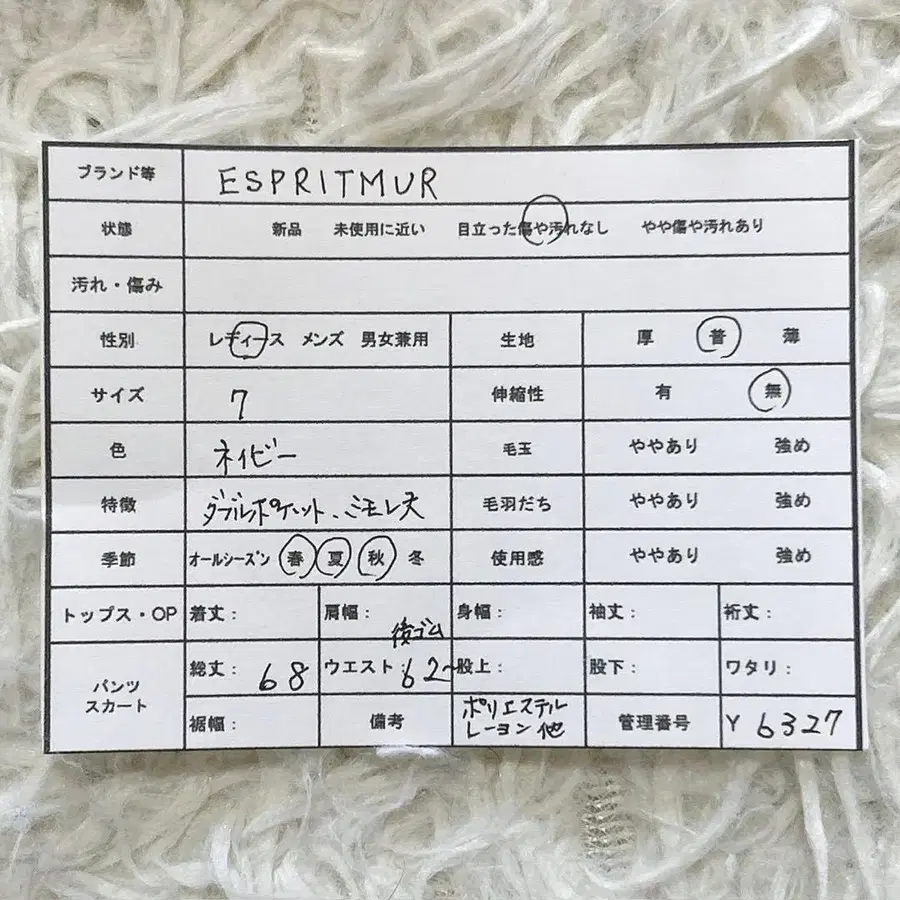 ブランド等 ESPRITMUR
状態 新品 未使用に近い 目立った傷や汚れなし やや傷や汚れあり
汚れ・傷み
性別 レディース メンズ 男女兼用 生地 厚 普 薄
サイズ 7 伸縮性 有 無
色 ネイビー 毛玉 ややあり 強め
特徴 ダブルポケット、ミモレ丈 毛羽だち ややあり 強め
季節 オールシーズン 春 夏 秋 冬 使用感 ややあり 強め
トップス・OP 着丈： 肩幅： 身幅： 袖丈： 裄丈：
後ゴム
パンツ
スカート
総丈：68 ウエスト：62~ 股上： 股下： ワタリ：
裾幅： 備考 ポリエステル
レーヨン他
管理番号 Y 6327